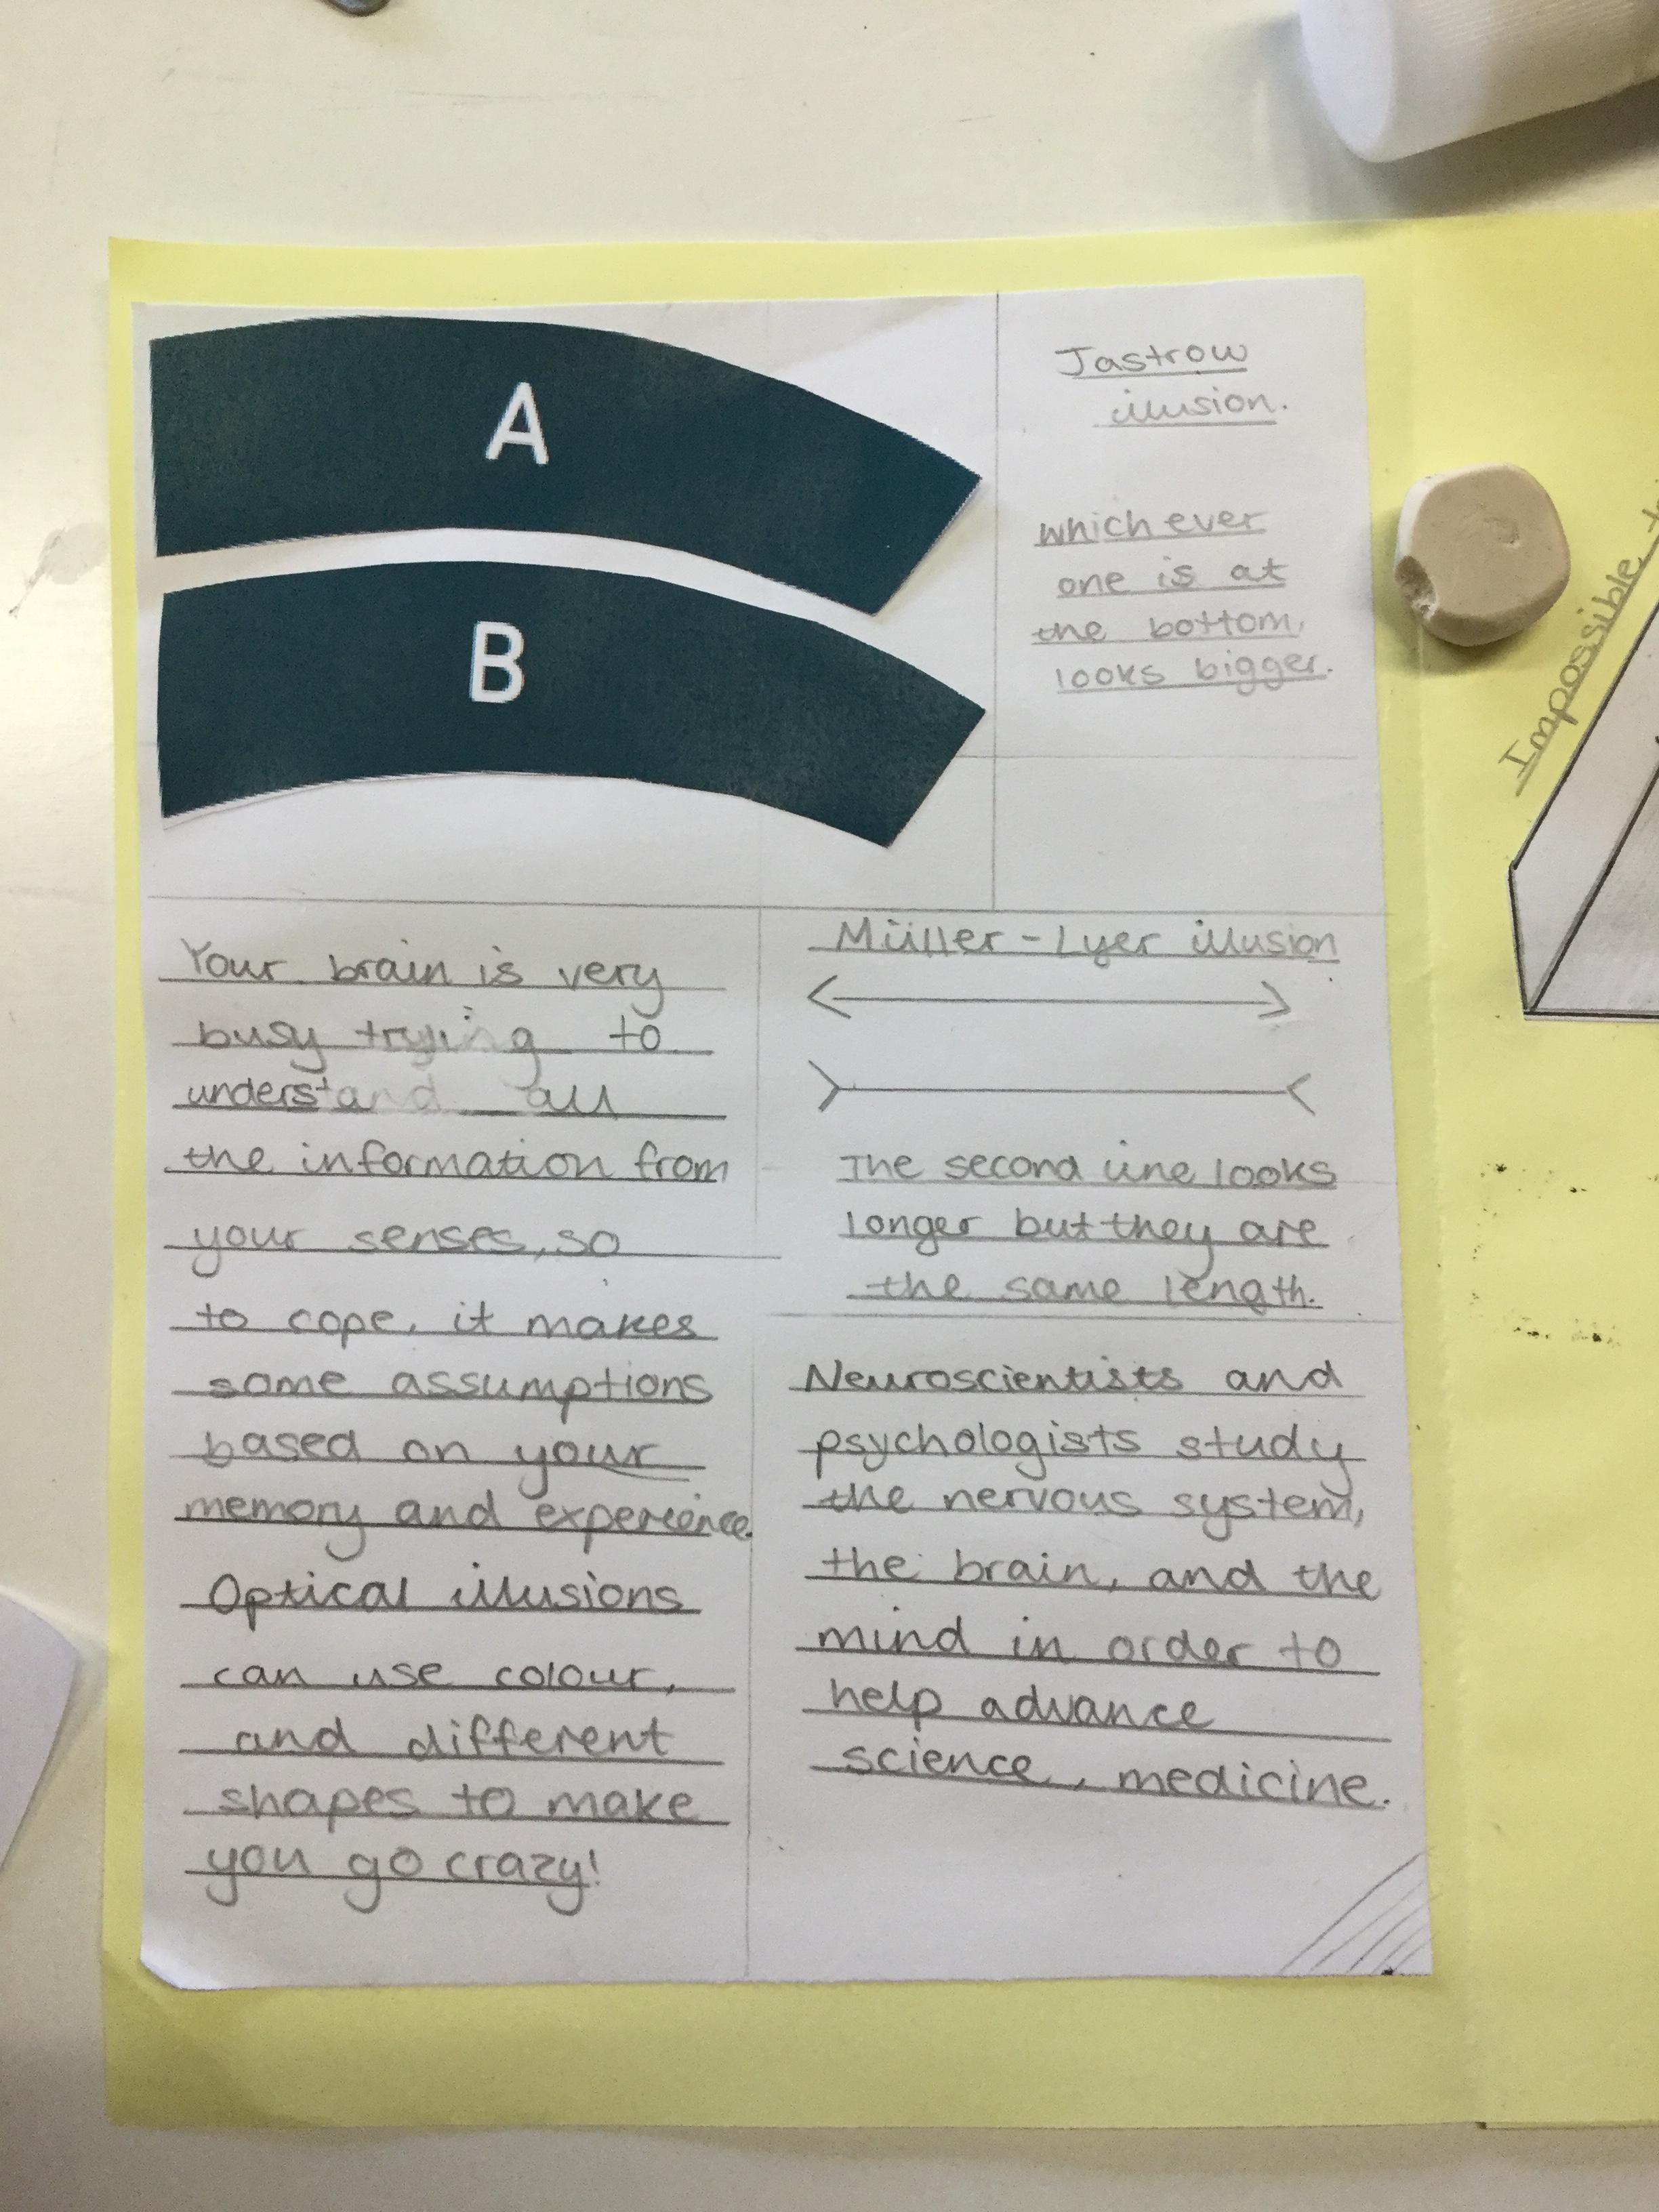 A
B
Jastrow
illusion.
which ever
one is at
the bottom,
looks bigger.
Your brain is very
busy trying to
understand all
the information from
your senses, so
to cope, it makes
some assumptions
based on your
memory and experience.
Optical illusions
can use colour,
and different
shapes to make
you go crazy!
Müller-Lyer illusion
The second line looks
longer but they are
the same length.
Neuroscientists and
psychologists study
the nervous system,
the brain, and the
mind in order to
help advance
science, medicine.
Impossible